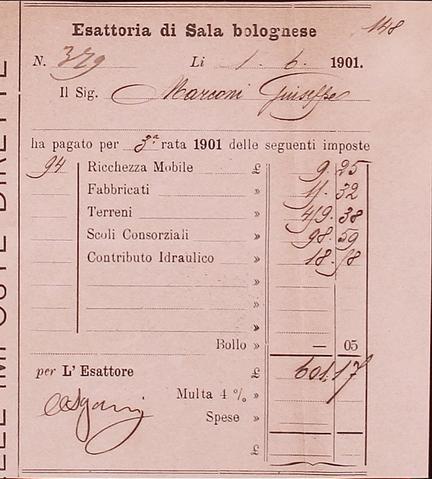 Esattoria di Sala bolognese 148
N. 379 Li 1. 6. 1901.
Il Sig. Marconi Giuseppe
ha pagato per 3ª rata 1901 delle seguenti imposte
94 Ricchezza Mobile £ 9 25
Fabbricati » 32
Terreni » 38
Scoli Consorziali » 98. 59
Contributo Idraulico » 18.
»
»
»
Bollo » — 05
per L' Esattore £ 601.17
Multa 4 % »
Spese »
£
IMPOSTE DIRETTE